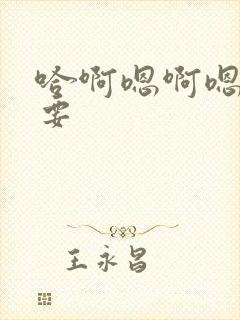 哈啊嗯啊嗯
要
王永昌